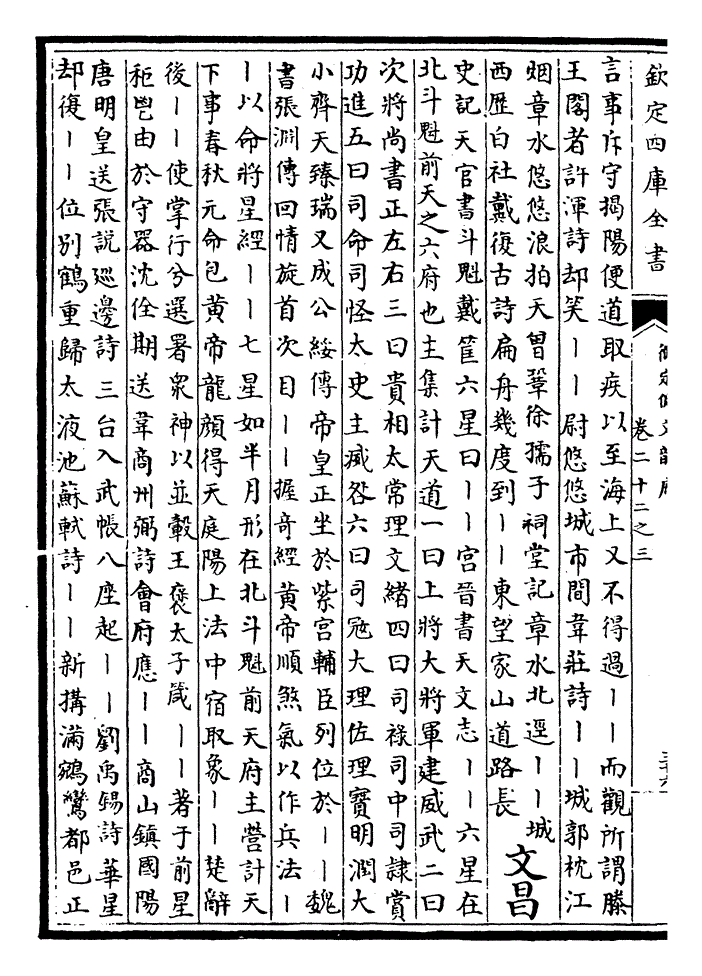 欽定四庫全書
御定佩文韻府
卷二十二之三
三十六
言事斥守揭陽便道取疾以至海上又不得過丨丨而觀所謂滕
王閣者許渾詩却笑丨丨尉悠悠城市間韋莊詩丨丨城郭枕江
烟章水悠悠浪拍天曾鞏徐孺子祠堂記章水北逕丨丨城
西歷白社戴復古詩扁舟幾度到丨丨東望家山道路長
文昌
史記天官書斗魁戴筐六星曰丨丨宮晉書天文志丨丨六星在
北斗魁前天之六府也主集計天道一曰上將大將軍建威武二曰
次將尚書正左右三曰貴相太常理文緒四曰司祿司中司隷賞
功進五曰司命司怪太史主滅咎六曰司寇大理佐理寳明潤大
小齊天臻瑞又成公綏傳帝皇正坐於紫宮輔臣列位於丨丨魏
書張淵傳回情旋首次目丨丨握奇經黃帝順煞氣以作兵法丨
丨以命將星經丨丨七星如半月形在北斗魁前天府主營計天
下事春秋元命包黃帝龍顔得天庭陽上法中宿取象丨丨楚辭
後丨丨使掌行兮選署衆神以並轂王褒太子箴丨丨著于前星
秬鬯由於守器沈佺期送韋商州弼詩會府應丨丨商山鎮國陽
唐明皇送張説巡邊詩三台入武帳八座起丨丨劉禹錫詩華星
却復丨丨位别鶴重歸太液池蘇軾詩丨丨新搆滿鵷鸞都邑正